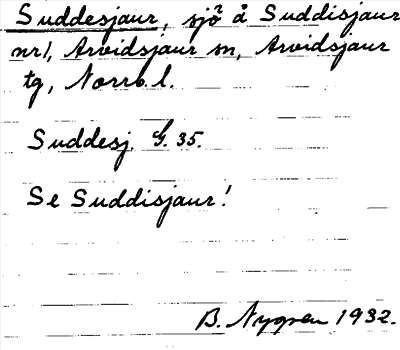 Suddesjaur, sjö å Suddisjaur
nr1, Arvidsjaur sn, Arvidsjaur
tg, Norrb. l.
Suddesj. G. 35.
Se Suddisjaur!
B. Nygren 1932.